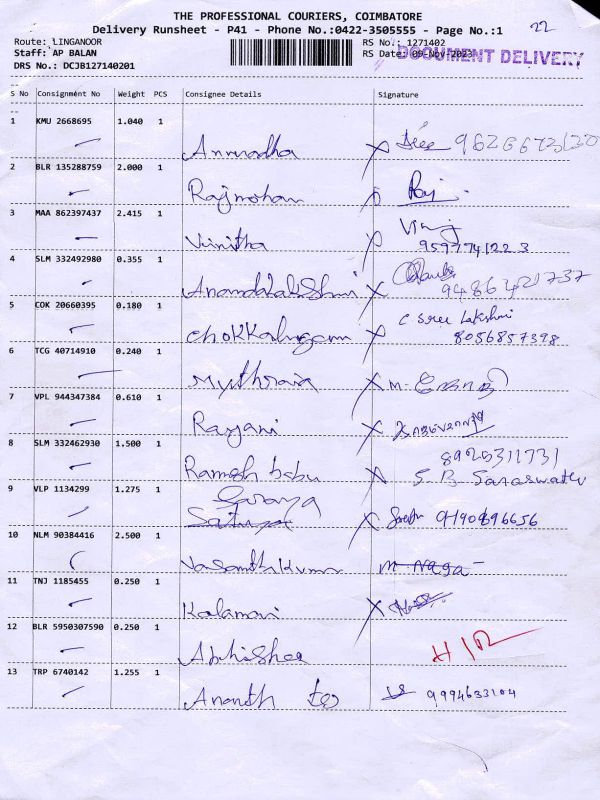 THE PROFESSIONAL COURIERS, COIMBATORE
22
Delivery Runsheet - P41 - Phone No.:0422-3505555 - Page No.:1
Route: LINGANOOR RS No.: 1271402
Staff: AP BALAN RS Date: 09-Nov-2023 DOCUMENT DELIVERY
DRS No.: DCJB127140201
S No Consignment No Weight PCS Consignee Details Signature
1 KMU 2668695 1.040 1
Anuradha
2 BLR 135288759 2.000 1
Rajmohan Raj
3 MAA 862397437 2.415 1
Vinitha 9597741223
4 SLM 332492980 0.355 1
Anandalakshmi 9486421737
5 COK 20660395 0.180 1 C Sree Lakshmi
Chokkalingam 8056857398
6 TCG 40714910 0.240 1
M.
7 VPL 944347384 0.610 1
Ranjani
8 SLM 332462930 1.500 1 8925311731
Ramesh babu S B Saraswathi
9 VLP 1134299 1.275 1 Saranya
10 NLM 90384416 2.500 1
Vasanthkumar M Naga
11 TNJ 1185455 0.250 1
Kalamani
12 BLR 5950307590 0.250 1
13 TRP 6740142 1.255 1
Ananth 9994633104